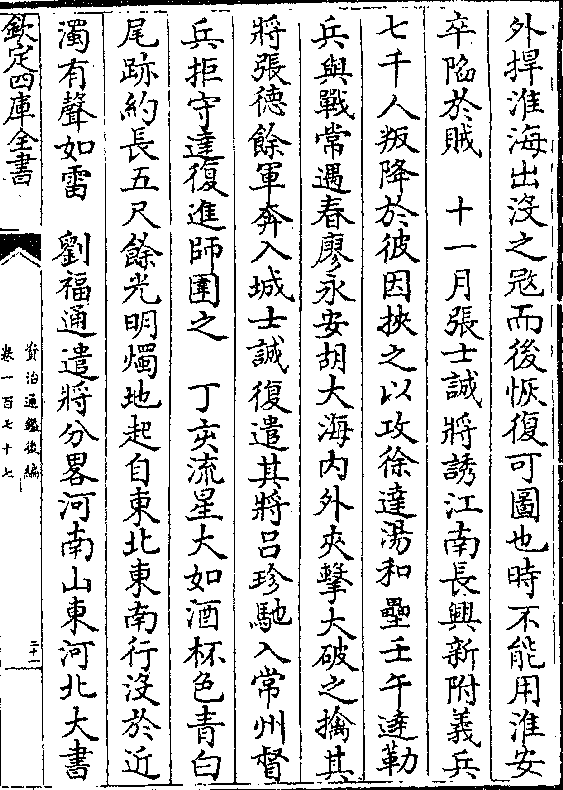 外捍淮海出沒之寇而後恢復可圖也時不能用淮安
卒陷於賊　十一月張士誠將誘江南長興新附義兵
七千人叛降於彼因挾之以攻徐達湯和壘壬午達勒
兵與戰常遇春廖永安胡大海内外夾擊大破之擒其
將張德餘軍奔入城士誠復遣其將吕珍馳入常州督
兵拒守達復進師圍之　丁亥流星大如酒杯色青白
尾跡約長五尺餘光明燭地起自東北東南行没於近
濁有聲如雷　劉福通遣將分畧河南山東河北大書
欽定四庫全書
資治通鑑後編
卷一百七十七
二十一